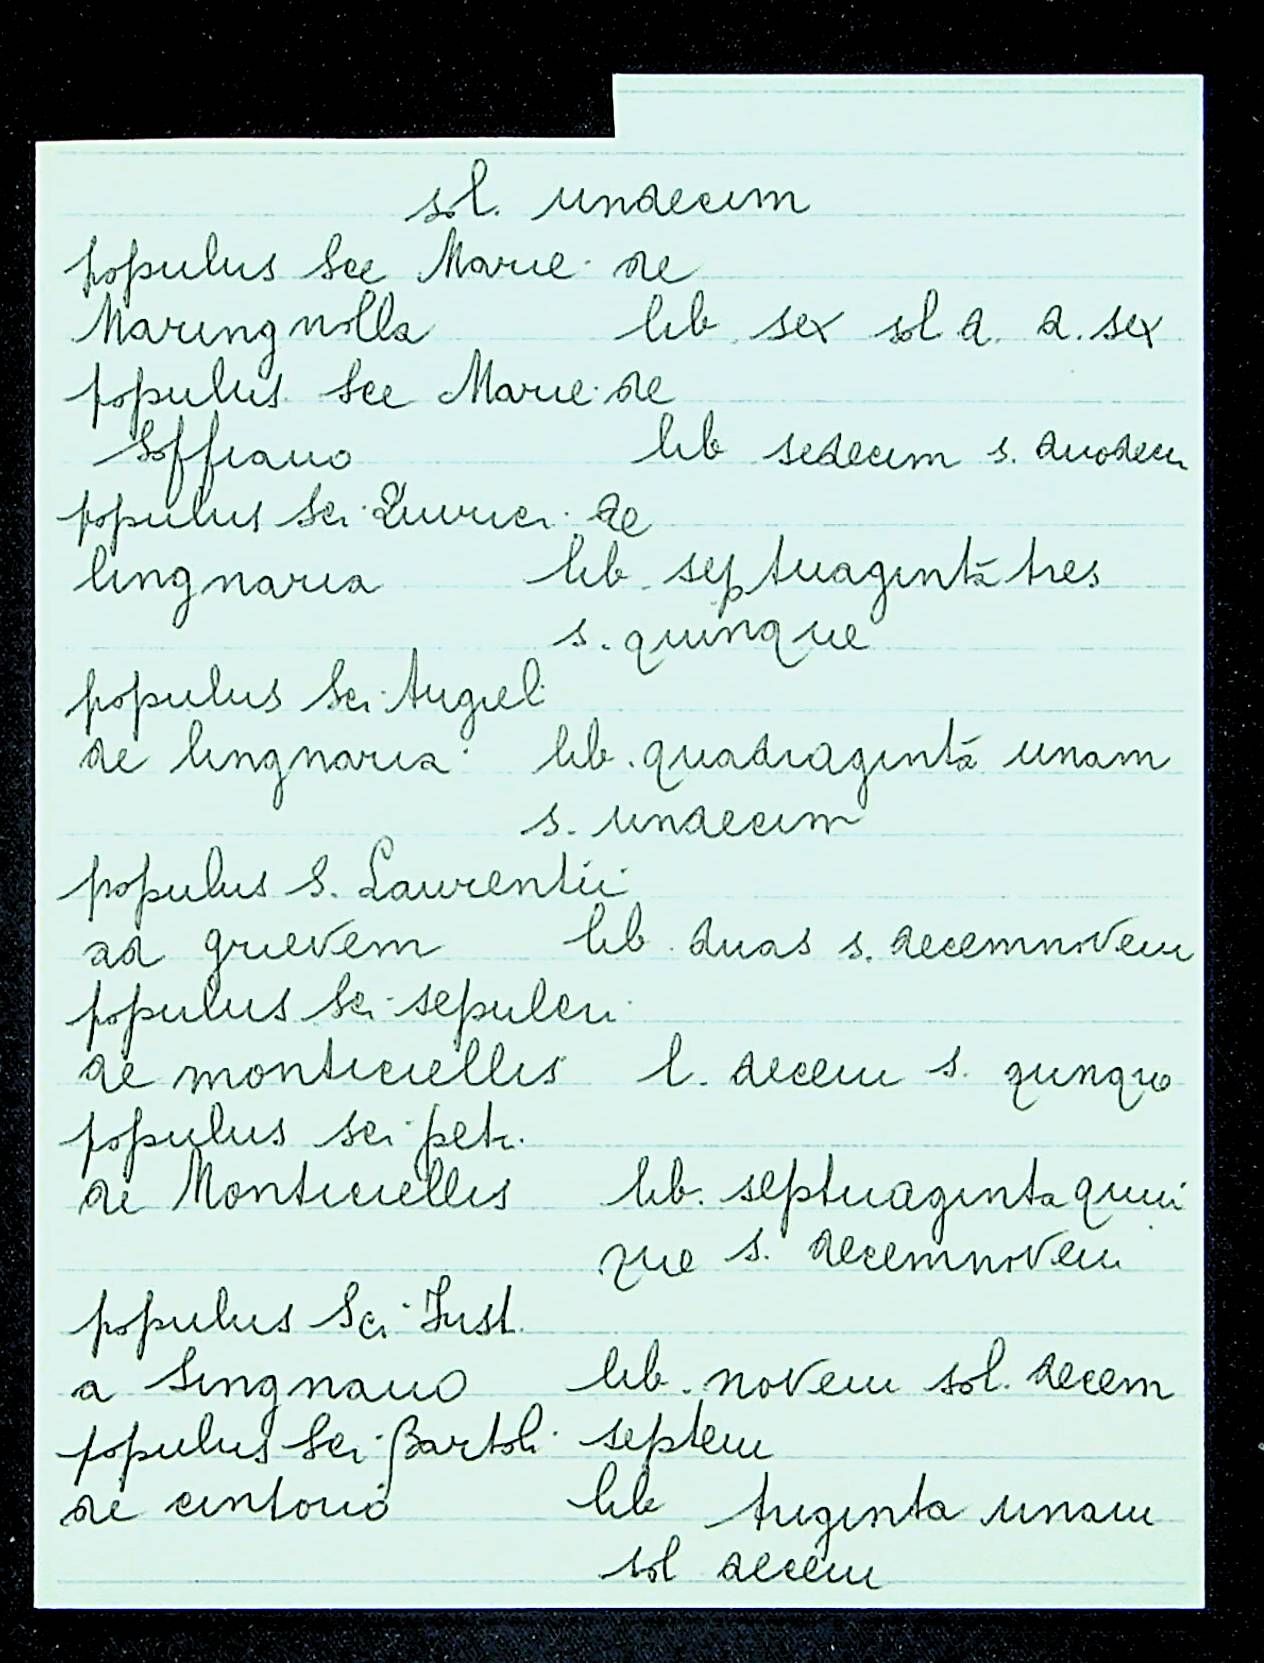 sol. undecim
populus See Marie de
Maringnolla lib. sex sol d. d. sex
populus See Marie de
Soffiano lib sedecim s. duodecim
populus Sci Quirici de
lingnaria lib septuaginta tres
s. quinque
populus Sci Angieli
de lingnaria lib. quadraginta unam
s. undecim
populus S. Laurentii
ad grievem lib duas s. decemnovem
populus Sci sepulcri
de monticiellis l. decem s. qunque
populus sci petr.
di Monticiellis lib. septuaginta quin
que s. decemnovem
populus Sci Just.
a Singnano lib. novem sol. decem
populus Sci Bartoli septem
di cintorio lib triginta unam
sol decem